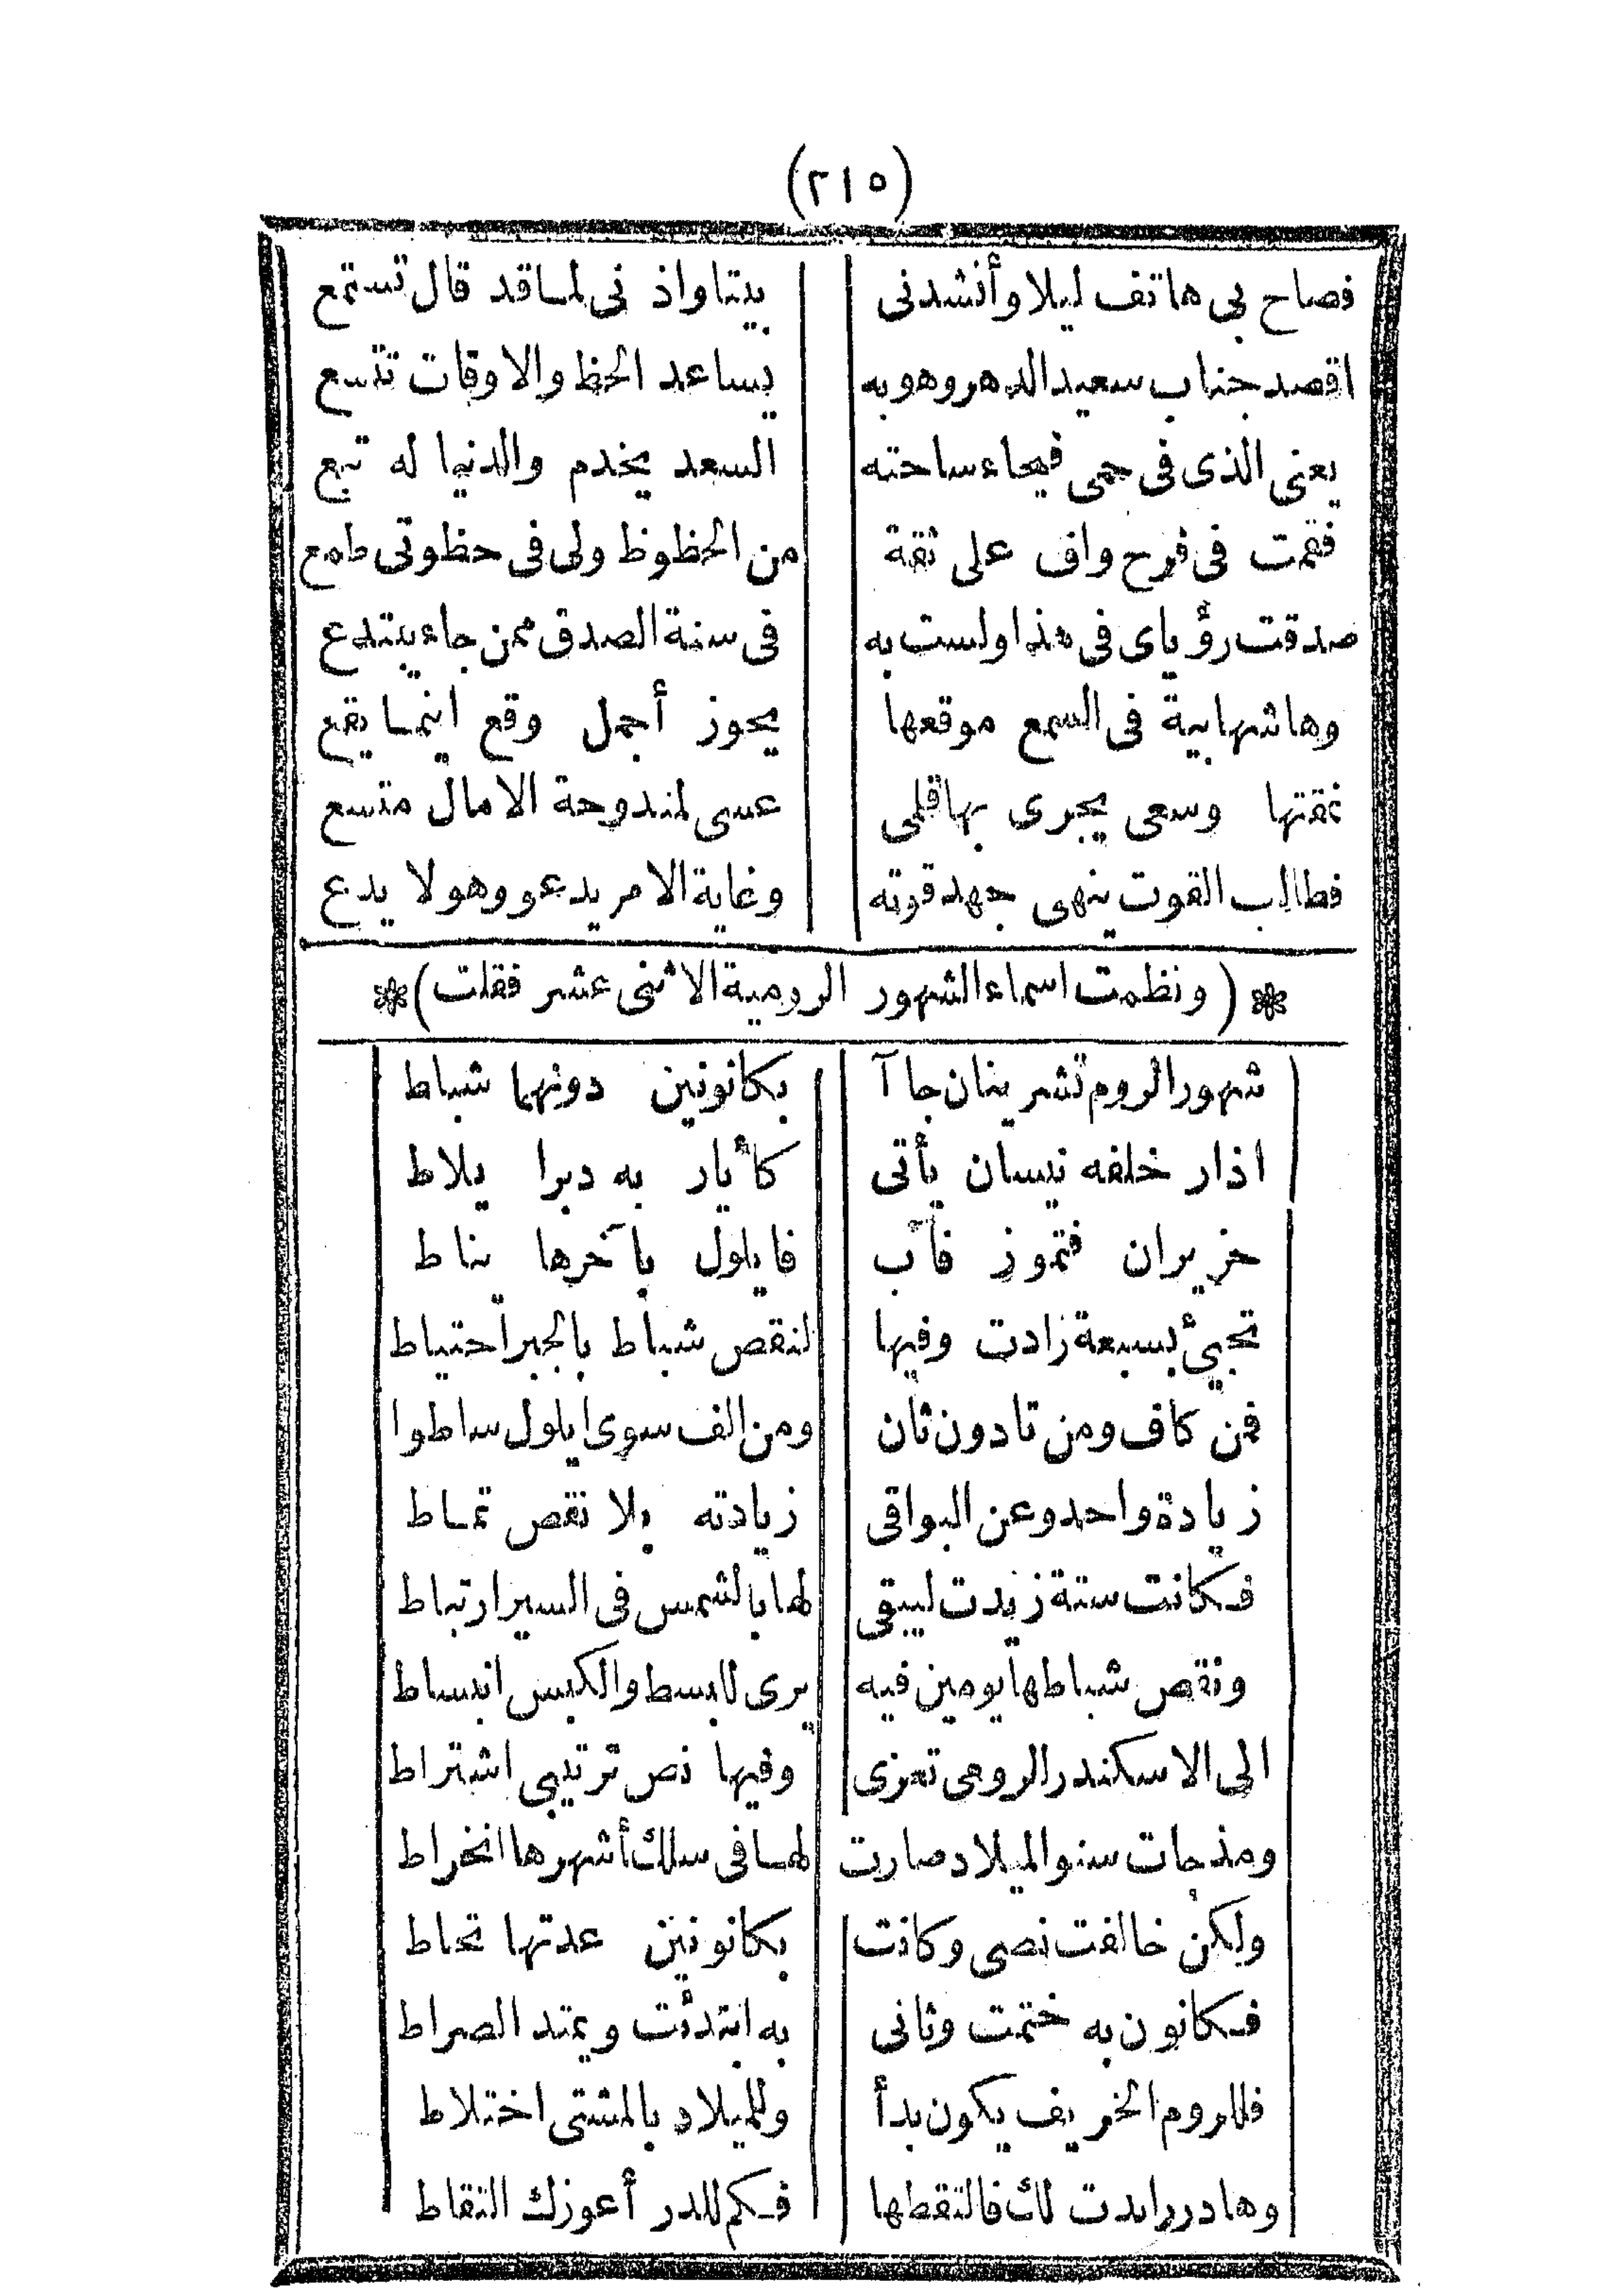 (٢١٥)
فصاح بي هاتف ليلا وأنشدنى بيتا واذنى لما قد قال تستمع
اقصد جناب سعيد الدهر وهو به يساعد الحظ والاوقات تتسع
يعنى الذى فى حمى فيحاء ساحته السعد يخدم والدنيا له تبع
فقمت فى فرح واف على ثقة من الحظوظ ولى فى حظوتى طمع
صدقت رؤياى فى هذا ولست به فى سنة الصدق ممن جاء يبتدع
وها شهابية فى السمع موقعها يحوز أجمل وقع اينما يقع
نمقتها وسعى يجرى بها قلمى عسى لمندوحة الامال متسع
فطالب القوت ينهى جهد قوته وغاية الامر يدعو وهو لا يدع
(ونظمت اسماء الشهور الرومية الاثنى عشر فقلت)
شهور الروم تشرينان جاآ بكانونين دونهما شباط
اذار خلفه نيسان يأتى كأيار به دبرا يلاط
حزيران فتموز فآب فايلول بآخرها يناط
تجيئ بسبعة زادت وفيها لنقص شباط بالجبر احتياط
فمن كاف ومن تا دون ثان ومن الف سوى ايلول ساطوا
زيادة واحد وعن البواقى زيادته بلا نقص تماط
فكانت ستة زيدت ليبقى لها بالشمس فى السير ارتباط
ونقص شباطها يومين فيه يرى للبسط والكبس انبساط
الى الاسكندر الرومى تعزى وفيها نص ترتيبى اشتراط
ومذ جات سنو الميلاد صارت لها فى سلك أشهرها انخراط
ولكن خالفت نصى وكانت بكانونين عدتها تحاط
فكانون به ختمت وثانى به ابتدئت ويمتد الصراط
فللروم الخريف يكون بدأ وللميلاد بالمشتى اختلاط
وها درر ابدت لك فالتقطها فكم للدر أعوزك التقاط